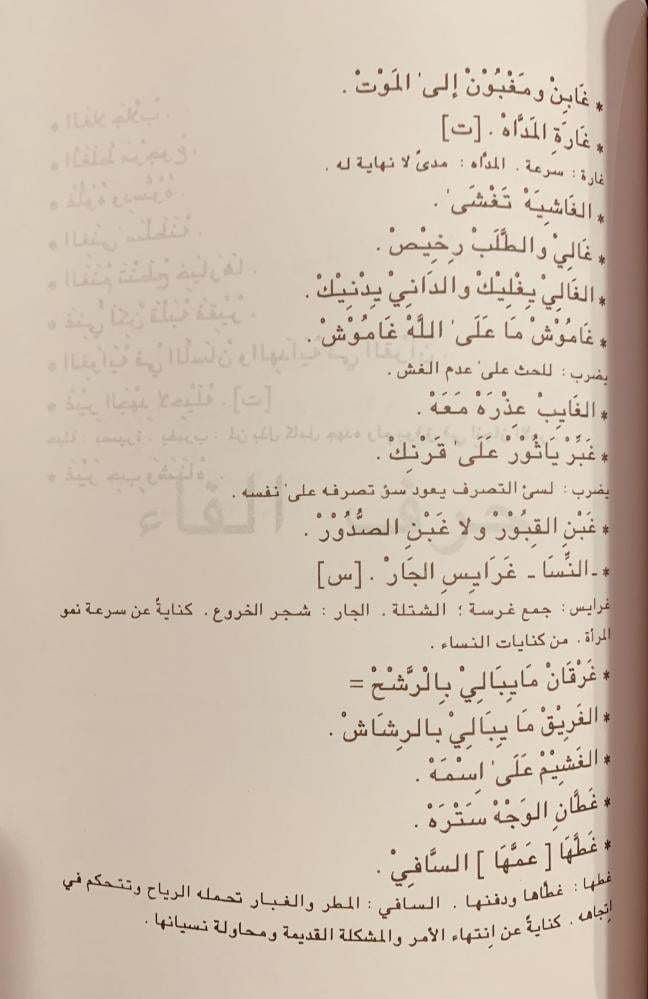 * غَابِنْ ومَغْبُوْنْ إلى' المَوْتْ .
* غَارَةِ المَدَّاهْ . [ت]
غارة : سرعة . المدَّاه : مدىً لا نهاية له .
* الغَاشِيَهْ تَغْشَى' .
* غَالِيْ والطَّلَبْ رِخِيْصْ .
* الغَالِيْ يِغْلِيْكْ والدَانِيْ يِدْنِيْكْ .
* غَامُوْشْ مَا عَلَى' اللَّهْ غَامُوْشْ .
يضرب : للحث على' عدم الغش .
* الغَايِبْ عِذْرَهْ مَعَهْ .
* غَبِّرْ يَاثُوْرْ عَلَى' قَرْنِكْ .
يضرب : لسئ التصرف يعود سؤ تصرفه على' نفسه .
* غَبْنِ القبُوْرْ ولا غَبْنِ الصُّدُوْرْ .
* ـ النِّسَا ـ غَرَايِسِ الجَارْ . [س]
غرايس : جمع غرسة ؛ الشتلة . الجار : شجر الخروع . كنايةً عن سرعة نمو
المرأة . من كنايات النساء .
* غَرْقَانْ مَايِبَالِيْ بِالْرَّشْحْ =
* الغَرِيْقْ مَا يِبَالِيْ بالرِشَاشْ .
* الغَشِيْمْ عَلَى' اِسْمَهْ .
* غَطَّانِ الوَجْهْ سَتْرَهْ .
* غَطَّهَا [ عَمَّهَا ] السَّافِيْ .
غطها : غطَّاها ودفنها . السافي : المطر والغبار تحمله الرياح وتتحكم في
اتِجاهه . كنايةً عن اِنتهاء الأمر والمشكلة القديمة ومحاولة نسيانها .